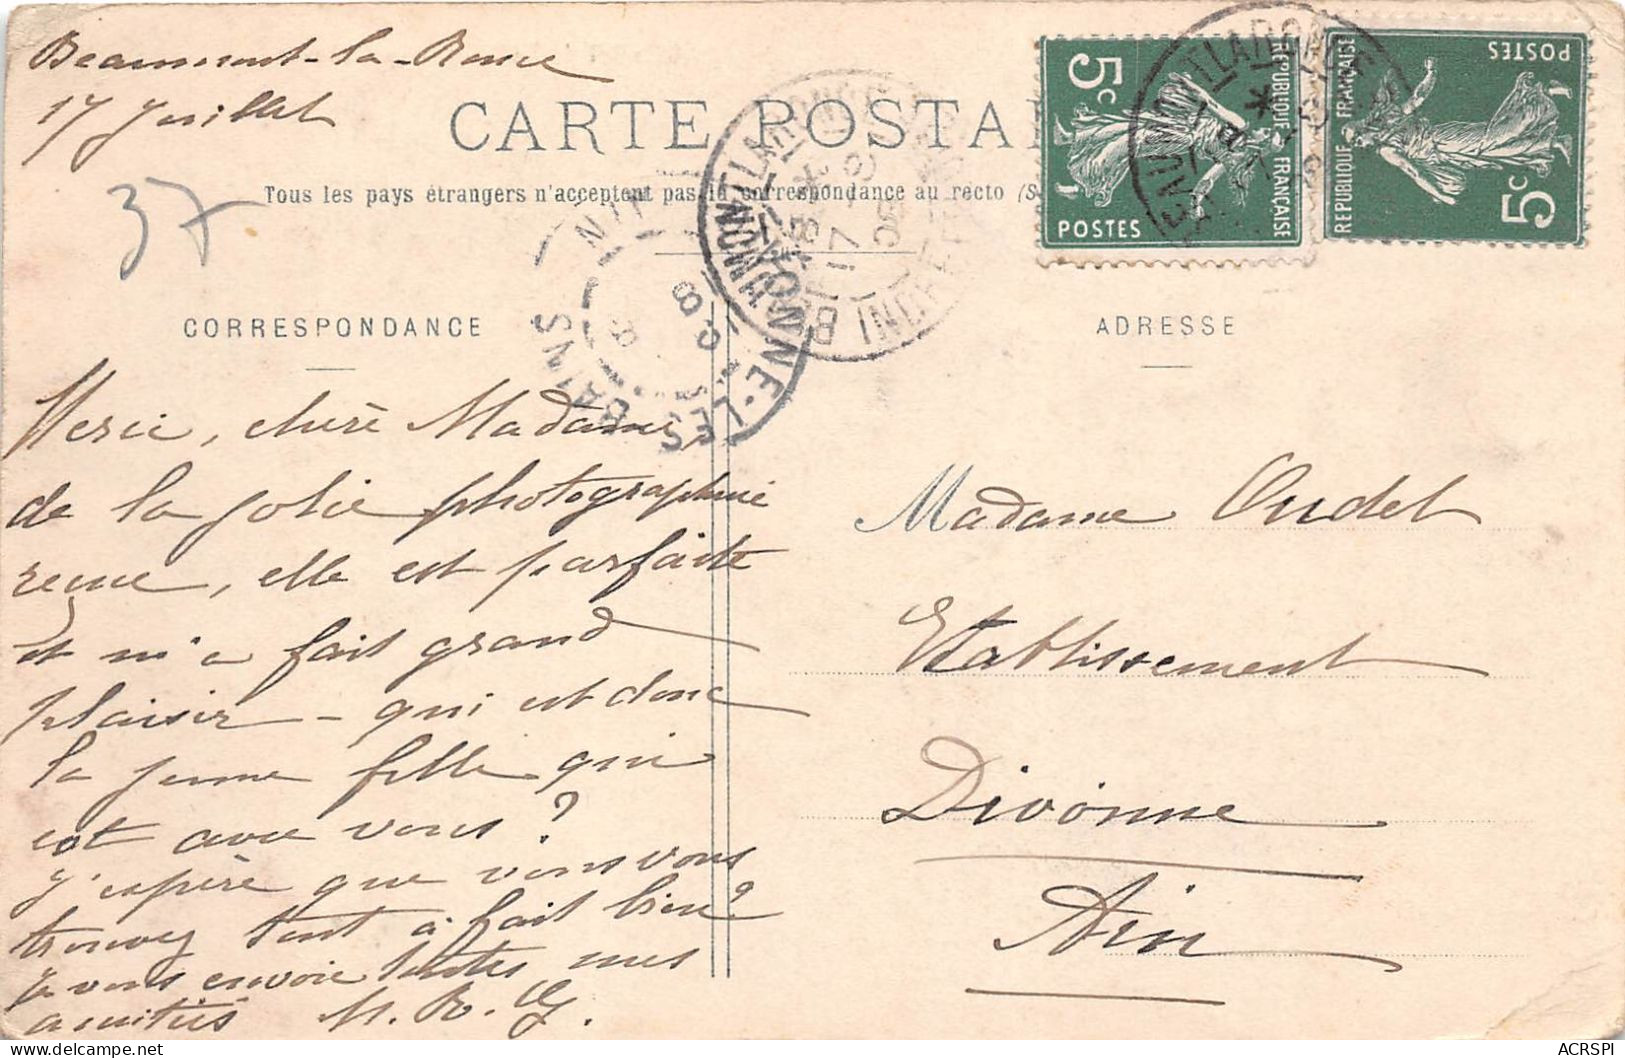 Beaumont-la-Ronce
17 Juillet
CARTE POSTA
Tous les pays étrangers n'acceptent pas la correspondance au recto (S
37
5c
REPUBLIQUE FRANÇAISE
POSTES
5c
REPUBLIQUE FRANÇAISE
POSTES
DIVONNE-LES-BAINS
CORRESPONDANCE
Merci, chère Madame,
de la jolie photographie
reçue, elle est parfaite
et m'a fait grand
plaisir - qui est donc
la jeune fille qui
est avec vous?
J'espère que vous vous
trouvez tout à fait bien?
Je vous envoie toutes mes
amitiés M. R. G.
ADRESSE
Madame Oudet
Etablissement
Divonne
Ain
ACRSPI